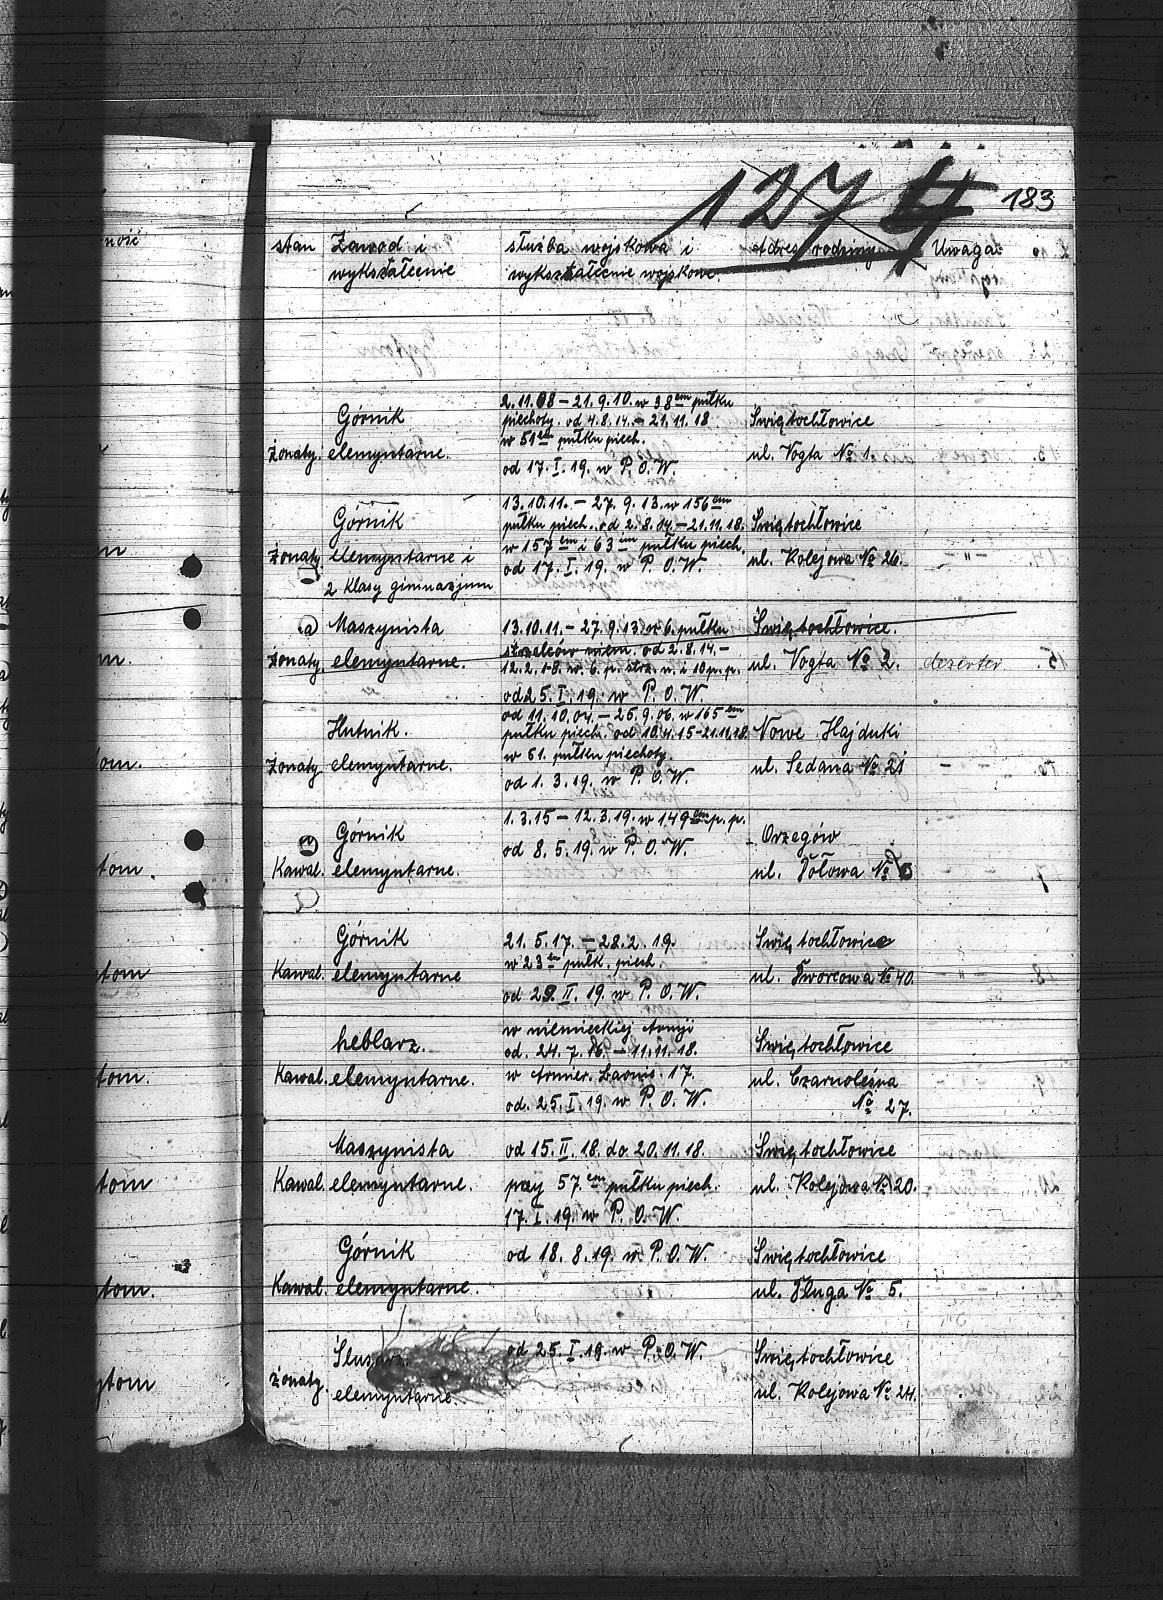 1274
183
stan Zawod i służba wojskowa i adres rodziny Uwaga
wykształcenie wykształcenie wojskowe.
2.11.08 – 21.9.10. w 38em pułku
Górnik piechoty. od 4.8.14. – 21.11.18 Świętochłowice
w 51em pułku piech.
Żonaty. elemyntarne. ul. Vogta № 1.
od 17. I. 19. w P. O. W.
13.10.11. – 27. 9. 13. w 156em
Górnik pułku piech. od 2.8.14. – 21.11.18. Świętochłowice
w 157em i 63em pułku piech.
Żonaty. elemyntarne i od 17. I. 19. w P. O. W. ul. Kolejowa № 26.
2 klasy gimnazjum
Maszynista 13.10.11. – 27.9.13. w 6. pułku Świętochłowice.
strzelców niem. od 2.8.14. –
Żonaty. elemyntarne. 12.2.18. w. 6. p. strz. n. i 10 p. p. ul. Vogta № 2. dezerter
od 25. I. 19. w P. O. W.
od 11.10.04. – 25.9.06. w 165em
Hutnik. pułku piech. od 10.4.15 – 21.11.18. Nowe Hajduki
w 61. pułku piechoty.
Żonaty. elemyntarne. od 1. 3. 19. w P. O. W. ul. Sedana № 21
1. 3. 15 – 12. 3. 19. w 149em p. p.
Górnik od 8. 5. 19. w P. O. W. Orzegów
Kawal. elemyntarne. ul. Połowa №
Górnik 21. 5. 17. – 28. 2. 19. Świętochłowice
w 23em pułk. piech.
Kawal. elemyntarne ul. Dworcowa № 40.
od 29. II. 19. w P. O. W.
w niemieckiej Armji
heblarz. od. 24. 7. 16. – 11. 11. 18. Świętochłowice
Kawal. elemyntarne. w Armier. Baonie. 17. ul. Czarnoleśna
od. 25. I. 19. w P. O. W. № 27.
Maszynista od 15. II. 18. do 20. 11. 18. Świętochłowice
Kawal. elemyntarne. przy 57em pułku piech. ul. Kolejowa № 20.
17. I. 19. w P. O. W.
Górnik od 18. 8. 19. w P. O. W. Świętochłowice
Kawal. elemyntarne. ul. Długa № 5.
od 25. I. 19. w P. O. W. Świętochłowice
Żonaty. elemyntarne. ul. Kolejowa № 24.